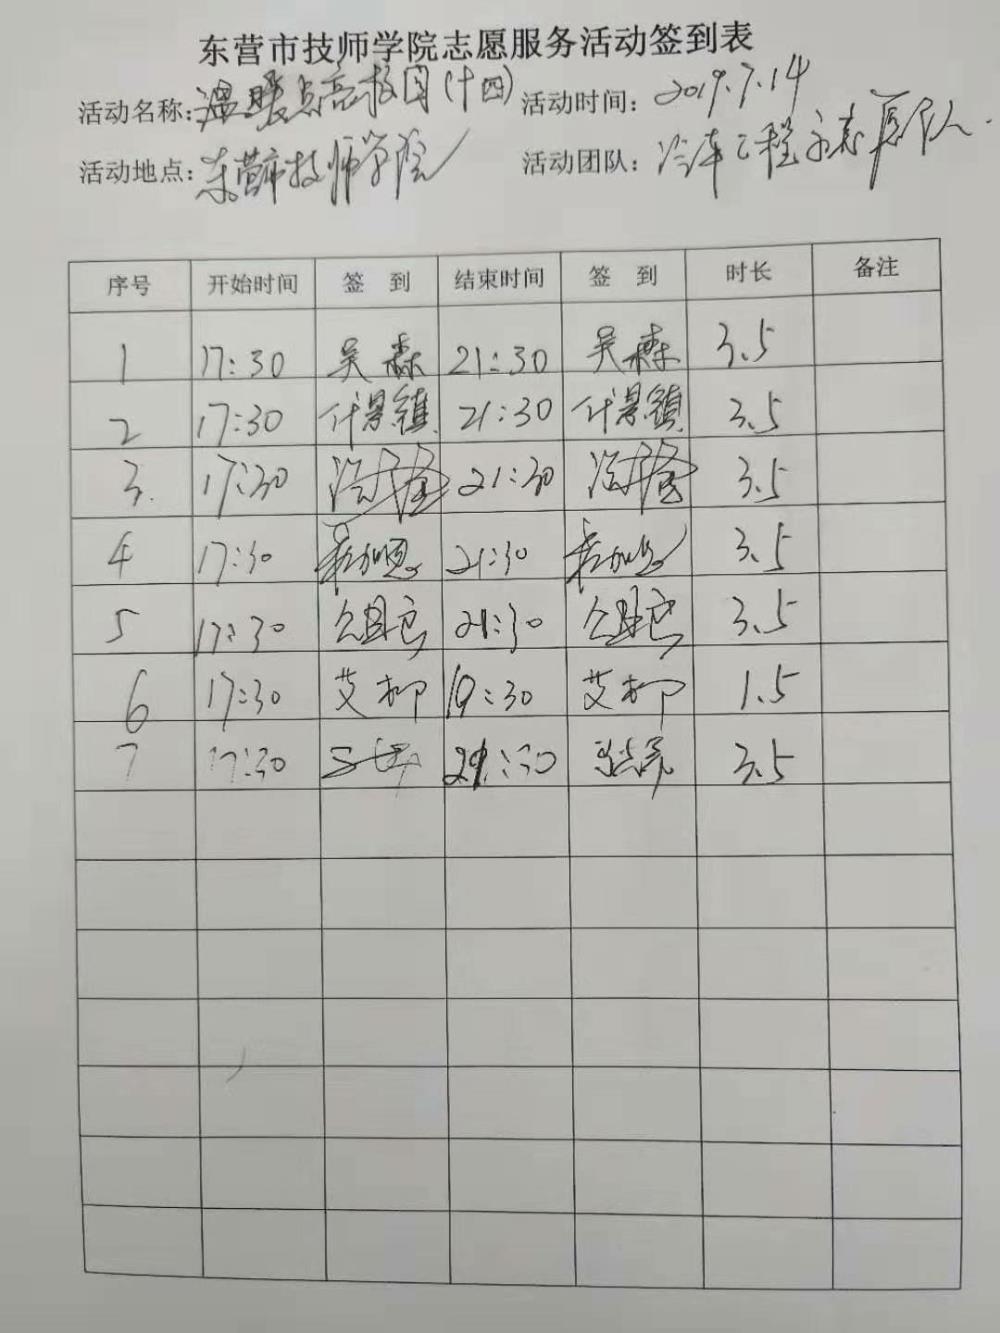 东营市技师学院志愿服务活动签到表
活动名称:温暖点亮校园(十四) 活动时间:2019.7.14
活动地点:东营市技师学院 活动团队:汽车工程系志愿队
序号 开始时间 签 到 结束时间 签 到 时长 备注
1 17:30 吴森 21:30 吴森 3.5
2 17:30 21:30 3.5
3. 17:30 21:30 3.5
4 17:30 21:30 3.5
5 17:30 21:30 3.5
6 17:30 艾柳 19:30 艾柳 1.5
7 17:30 21:30 3.5